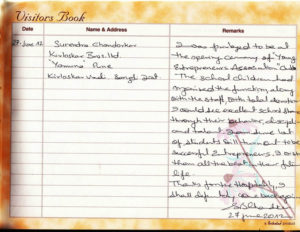 Visitors Book
Date Name & Address Remarks
27 June 12 Surendra Chandorkar
Kirloskar Bros. ltd.
"Yamuna" Pune
Kirloskar Wadi. Sangli Dist.
I was privileged to be at
the opening ceremony of Young
Entrepreneurs Association Club
The school children had
organised the function along
with the staff,
I could see excellent school
through their behavior,
and talent. I am sure lot
of students will to be
successful Entrepreneurs. I wish
them all the best in their future
life.
Thanks for the Hospitality. I
shall come back again
27 June 2012